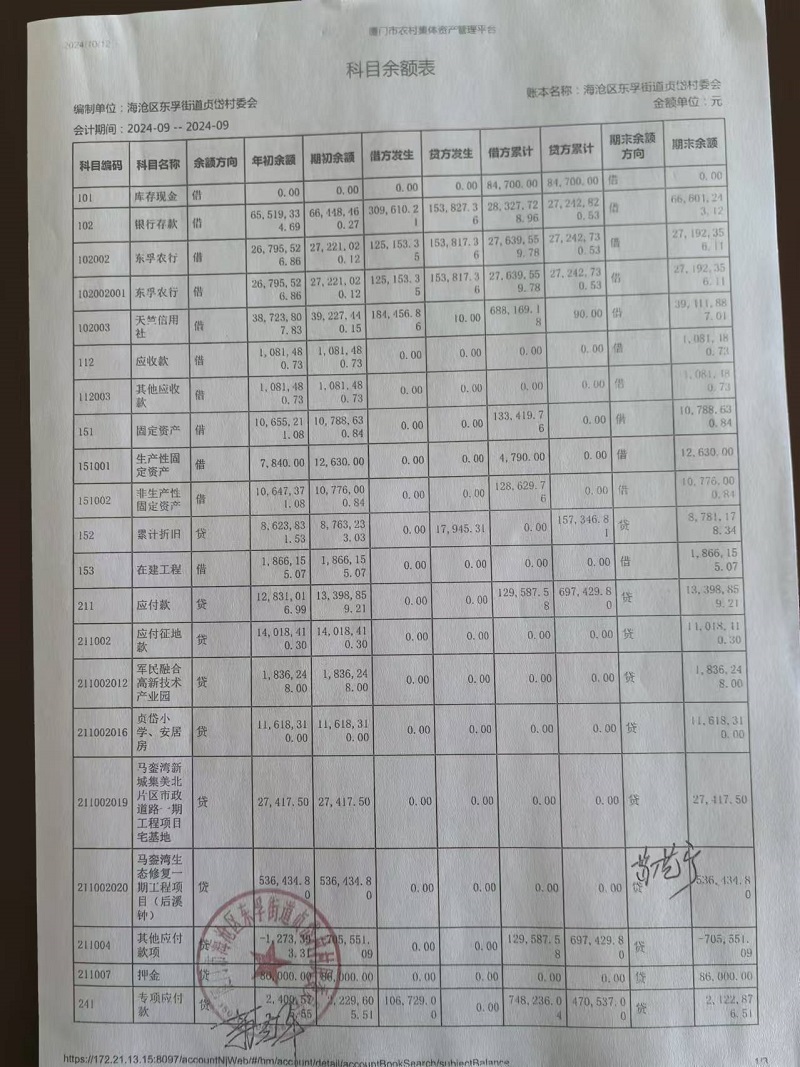 2024/10/12
厦门市农村集体资产管理平台
科目余额表
编制单位：海沧区东孚街道贞岱村委会
账本名称：海沧区东孚街道贞岱村委会
会计期间：2024-09 -- 2024-09
金额单位：元
科目编码 科目名称 余额方向 年初余额 期初余额 借方发生 贷方发生 借方累计 贷方累计 期末余额方向 期末余额
101 库存现金 借 0.00 0.00 0.00 0.00 84,700.00 84,700.00 借 0.00
102 银行存款 借 65,519,334.69 66,448,460.27 309,610.21 153,827.36 28,327,728.96 27,242,820.53 借 66,601,243.12
102002 东孚农行 借 26,795,526.86 27,221,020.12 125,153.35 153,817.36 27,639,559.78 27,242,730.53 借 27,192,356.11
102002001 东孚农行 借 26,795,526.86 27,221,020.12 125,153.35 153,817.36 27,639,559.78 27,242,730.53 借 27,192,356.11
102003 天竺信用社 借 38,723,807.83 39,227,440.15 184,456.86 10.00 688,169.18 90.00 借 39,411,887.01
112 应收款 借 1,081,480.73 1,081,480.73 0.00 0.00 0.00 0.00 借 1,081,480.73
112003 其他应收款 借 1,081,480.73 1,081,480.73 0.00 0.00 0.00 0.00 借 1,081,480.73
151 固定资产 借 10,655,211.08 10,788,630.84 0.00 0.00 133,419.76 0.00 借 10,788,630.84
151001 生产性固定资产 借 7,840.00 12,630.00 0.00 0.00 4,790.00 0.00 借 12,630.00
151002 非生产性固定资产 借 10,647,371.08 10,776,000.84 0.00 0.00 128,629.76 0.00 借 10,776,000.84
152 累计折旧 贷 8,623,831.53 8,763,233.03 0.00 17,945.31 0.00 157,346.81 贷 8,781,178.34
153 在建工程 借 1,866,155.07 1,866,155.07 0.00 0.00 0.00 0.00 借 1,866,155.07
211 应付款 贷 12,831,016.99 13,398,859.21 0.00 0.00 129,587.58 697,429.80 贷 13,398,859.21
211002 应付征地款 贷 14,018,410.30 14,018,410.30 0.00 0.00 0.00 0.00 贷 14,018,410.30
211002012 军民融合高新技术产业园 贷 1,836,248.00 1,836,248.00 0.00 0.00 0.00 0.00 贷 1,836,248.00
211002016 贞岱小学、安居房 贷 11,618,310.00 11,618,310.00 0.00 0.00 0.00 0.00 贷 11,618,310.00
211002019 马銮湾新城集美北片区市政道路一期工程项目宅基地 贷 27,417.50 27,417.50 0.00 0.00 0.00 0.00 贷 27,417.50
211002020 马銮湾生态修复一期工程项目（后溪钟） 贷 536,434.80 536,434.80 0.00 0.00 0.00 0.00 贷 536,434.80
211004 其他应付款项 贷 -705,551.09 0.00 0.00 129,587.58 697,429.80 贷 -705,551.09
211007 押金 贷 86,000.00 86,000.00 0.00 0.00 0.00 0.00 贷 86,000.00
241 专项应付款 贷 2,229,605.51 106,729.00 0.00 748,236.04 470,537.00 贷 2,122,876.51
https://172.21.13.15:8097/accountNjWeb/#/hm/account/detail/accountBookSearch/subjectBalance
1/3